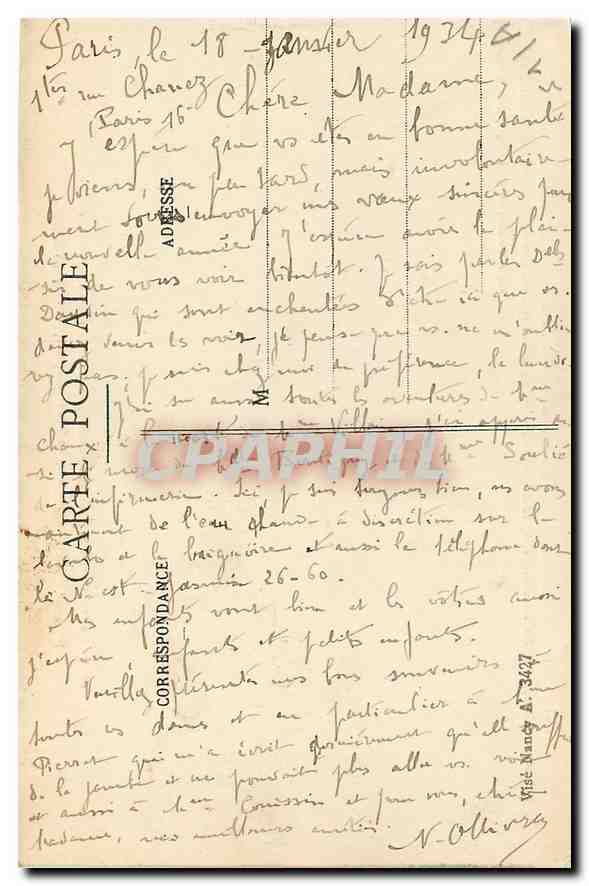 Paris, le 18 janvier 1934
1ter rue Chanez
Paris 16e Chère Madame,
J'espère que vs êtes en bonne santé
je viens, un peu tard, mais involontaire-
ment vous envoyer mes vœux sincères pour
la nouvelle année. J'espère avoir le plai-
sir de vous voir bientôt. Je vais par les Delles
qui sont enchantées d'être ici que vs.
venir les voir, je pense que vs. ne m'oublie-
rez pas, je suis chez moi de préférence, le
J'ai su aussi toutes les aventures de Mme
à Villa j'ai appris
de Mme Soulié
de l'infirmerie. Ici, je suis toujours bien, ns avons
maintenant de l'eau chaude à discrétion sur le
lavabo et la baignoire et aussi le téléphone dont
le No est Jasmin 26-60.
Mes enfants vont bien et les vôtres aussi
j'espère, enfants et petits enfants.
Veuillez présenter mes bons souvenirs à
toutes ces dames et en particulier à Mme
Pierrot qui m'a écrit dernièrement qu'elle souffre
de la jambe et ne pouvait plus aller vs. voir
et aussi à Mme Couissin et pour vous, chère
Madame, mes meilleures amitiés.
N. Ollivier
CARTE POSTALE
CORRESPONDANCE
ADRESSE
M
Visé Nancy A. 3427
CPAPHIL